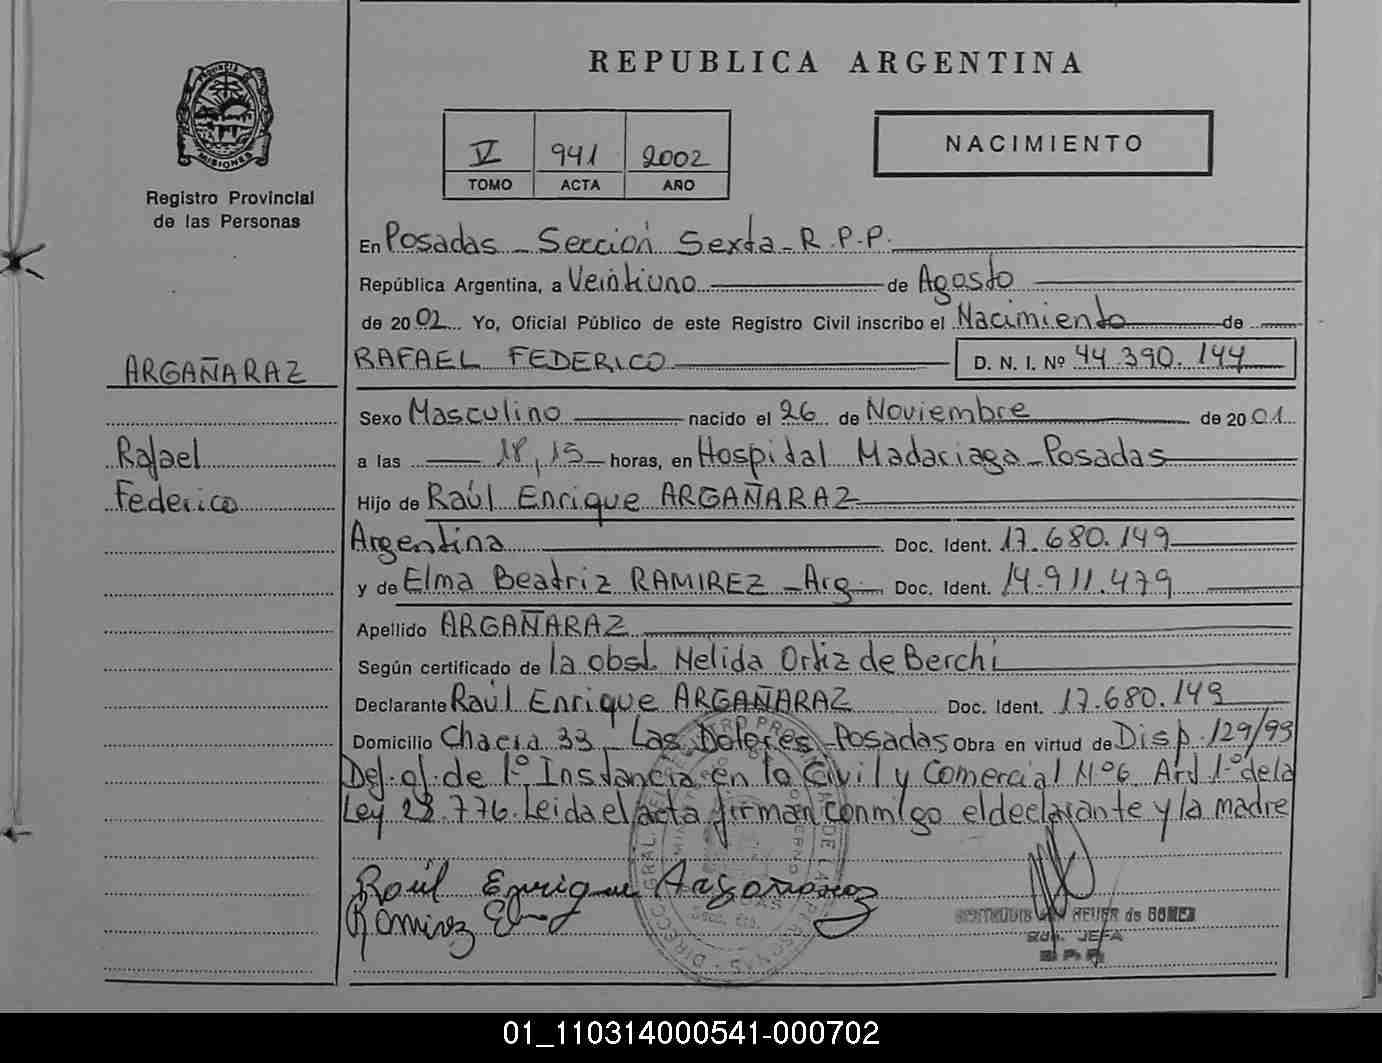 REPUBLICA ARGENTINA
PROVINCIA DE
MISIONES
Registro Provincial
de las Personas
V 941 2002
TOMO ACTA AÑO
NACIMIENTO
En Posadas - Sección Sexta - R.P.P.
República Argentina, a Veintiuno de Agosto
de 2002 Yo, Oficial Público de este Registro Civil inscribo el Nacimiento de
ARGAÑARAZ
RAFAEL FEDERICO D. N. I. Nº 44.390.144
Sexo Masculino nacido el 26 de Noviembre de 2001
Rafael
a las 18,15 horas, en Hospital Madariaga - Posadas
Federico
Hijo de Raúl Enrique ARGAÑARAZ
Argentina Doc. Ident. 17.680.149
y de Elma Beatriz RAMIREZ - Arg. Doc. Ident. 14.911.479
Apellido ARGAÑARAZ
Según certificado de la obst. Nelida Ortiz de Berchi
Declarante Raúl Enrique ARGAÑARAZ Doc. Ident. 17.680.149
Domicilio Chacra 33, Las Dolores - Posadas Obra en virtud de Disp. 129/99
Def. of. de 1º Instancia en lo Civil y Comercial Nº 6 Art 1º de la
Ley 23.776. Leida el acta firman conmigo el declarante y la madre
Raúl Enrique Argañaraz
Ramirez
de GOMEZ
SUB. JEFA
R.P.P.
01_110314000541-000702